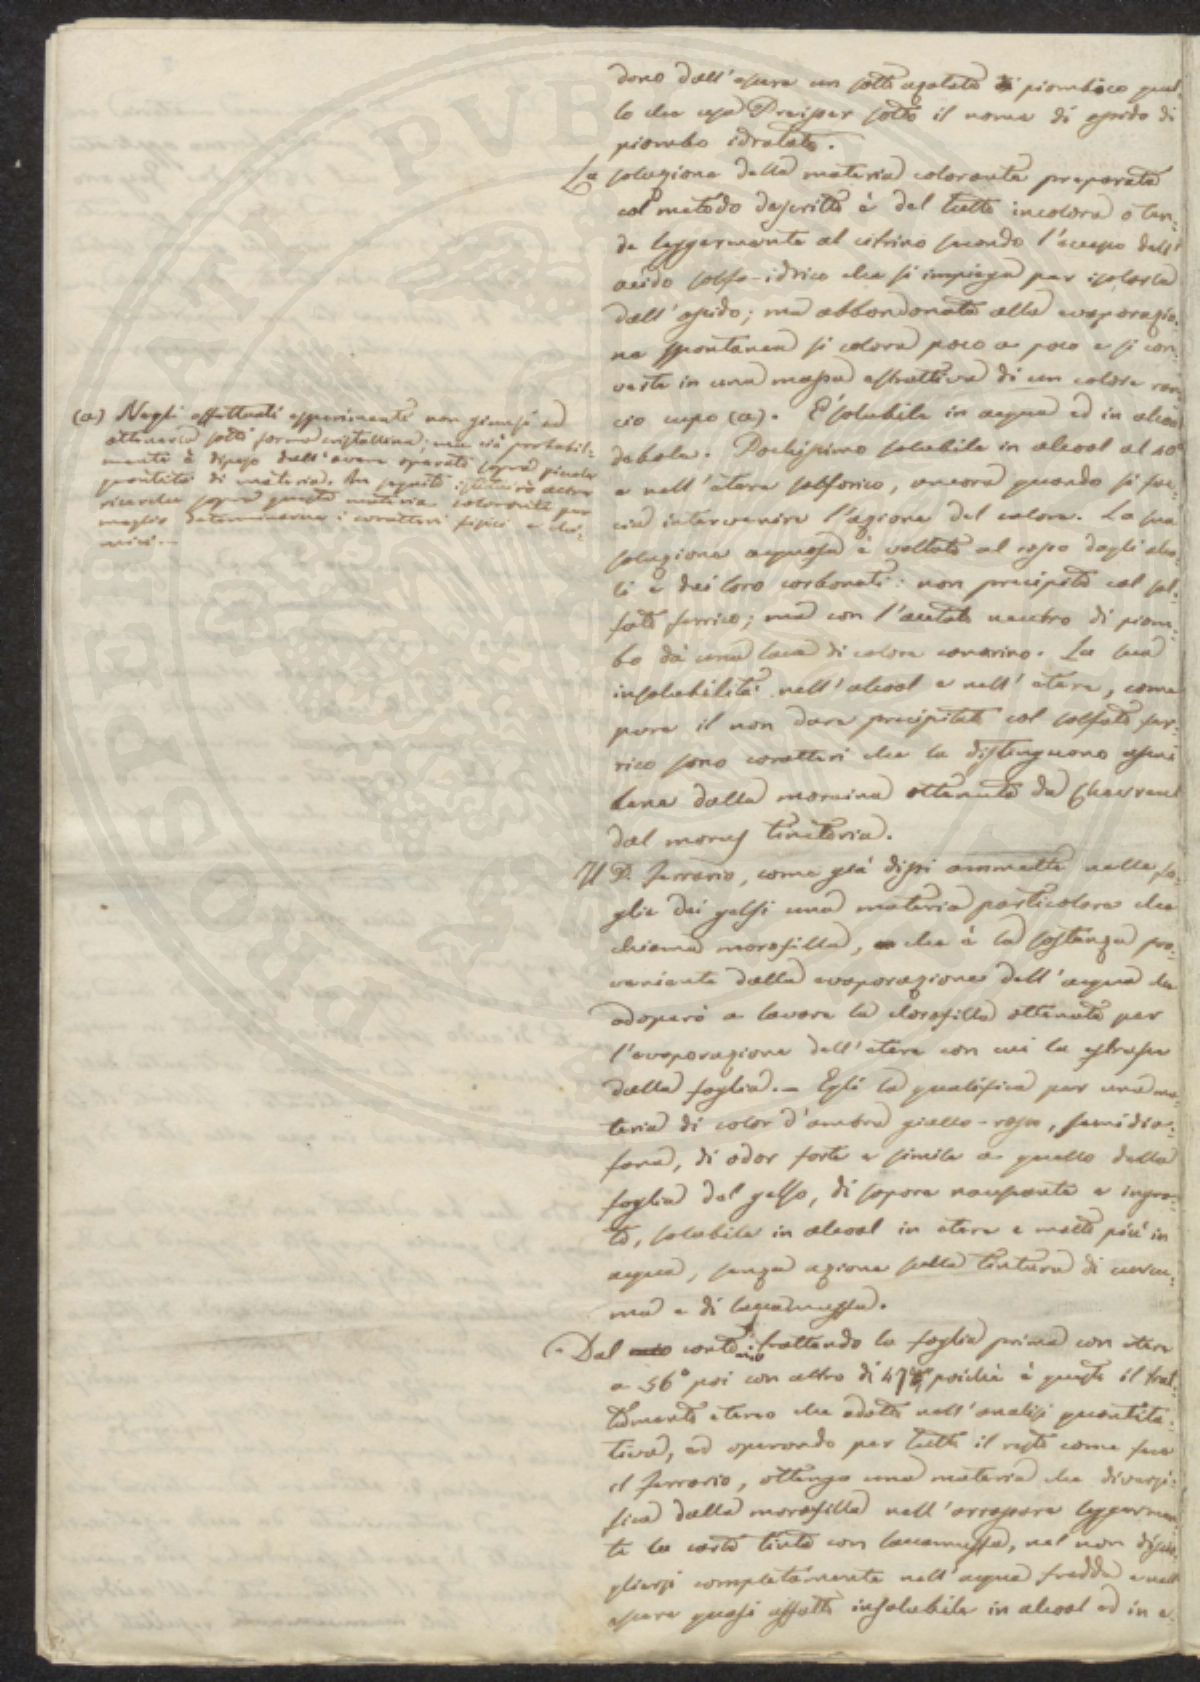 dono dall'essere un sotto azotato di piombico quel-
lo che usa Preisser sotto il nome di ossido di
piombo idratato.
La soluzione della materia colorante preparata
col metodo descritto è del tutto incolora o ten-
de leggermente al citrino secondo l'eccesso dell'
acido solfo-idrico che si impiega per isolarla
dall'ossido; ma abbandonata alla evaporazio-
ne spontanea si colora poco a poco e si con-
verte in una massa estrattiva di un colore ran-
cio cupo (a). E' solubile in acqua ed in alcool
debole. Pochissimo solubile in alcool al 40°
e nell'etere solforico, ancora quando si fac-
cia intervenire l'azione del calore. La sua
soluzione acquosa è voltata al rosso dagli alca-
li e dai loro carbonati: non precipita col sol-
fato ferrico; ma con l'acetato neutro di piom-
bo dà una laca di colore canarino. La sua
insolubilità nell'alcool e nell'etere, come
pure il non dare precipitato col solfato fer-
rico sono caratteri che la distinguono assai
bene dalla moraina ottenuta da Chevreul
dal morus tinctoria.
Il D. Ferrario, come già dissi ammette nelle fo-
glie dei gelsi una materia particolare che
chiama morofilla, che è la sostanza pro-
veniente dalla evaporazione dell'acqua che
adoperò a lavare la clorofilla ottenuta per
l'evaporazione dell'etere con cui la estrasse
dalla foglia. — Egli la qualifica per una ma-
teria di color d'ambra giallo-rosso, semidia-
fana, di odor forte e simile a quello della
foglia del gelso, di sapore nauseante e ingra-
to, solubile in alcool in etere e molto più in
acqua, senza azione sulla tintura di curcu-
ma e di laccamuffa.
Dal conto mio trattando la foglia prima con etere
a 56° poi con altro di 47° poichè è questo il trat-
tamento etereo che adottai nell'analisi quantita-
tiva, ed operando per tutto il resto come fece
il Ferrario, ottengo una materia che diversi-
fica dalla morofilla nell'arrossare leggermen-
te la carta tinta con laccamuffa, nel non discio-
gliersi completamente nell'acqua fredda e nell'
essere quasi affatto insolubile in alcool ed in e-
(a) Negli effettuati esperimenti non giunsi ad
ottenerla sotto forma cristallina; ma ciò probabil-
mente è dipeso dall'avere operato sopra piccola
quantità di materia. In seguito istituirò altre
ricerche sopra questa materia colorante per
meglio determinarne i caratteri fisici e chi-
mici. —